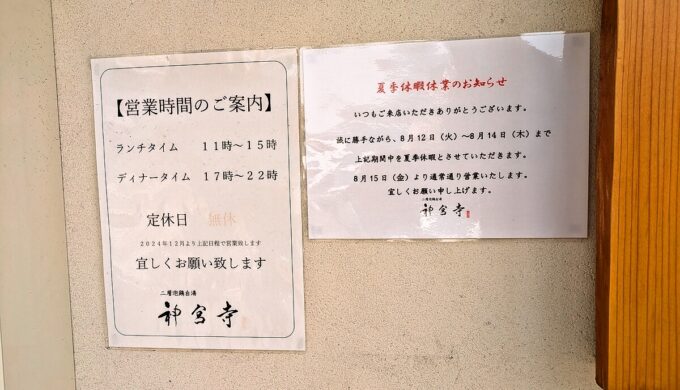 【営業時間のご案内】
ランチタイム 11時～15時
ディナータイム 17時～22時
定休日 無休
2024年12月より上記日程で営業致します
宜しくお願い致します
二層泡鶏白湯
神宮寺
夏季休暇休業のお知らせ
いつもご来店いただきありがとうございます。
誠に勝手ながら、8月12日（火）～8月14日（木）まで
上記期間中を夏季休暇とさせていただきます。
8月15日（金）より通常通り営業いたします。
宜しくお願い申し上げます。
二層泡鶏白湯
神宮寺